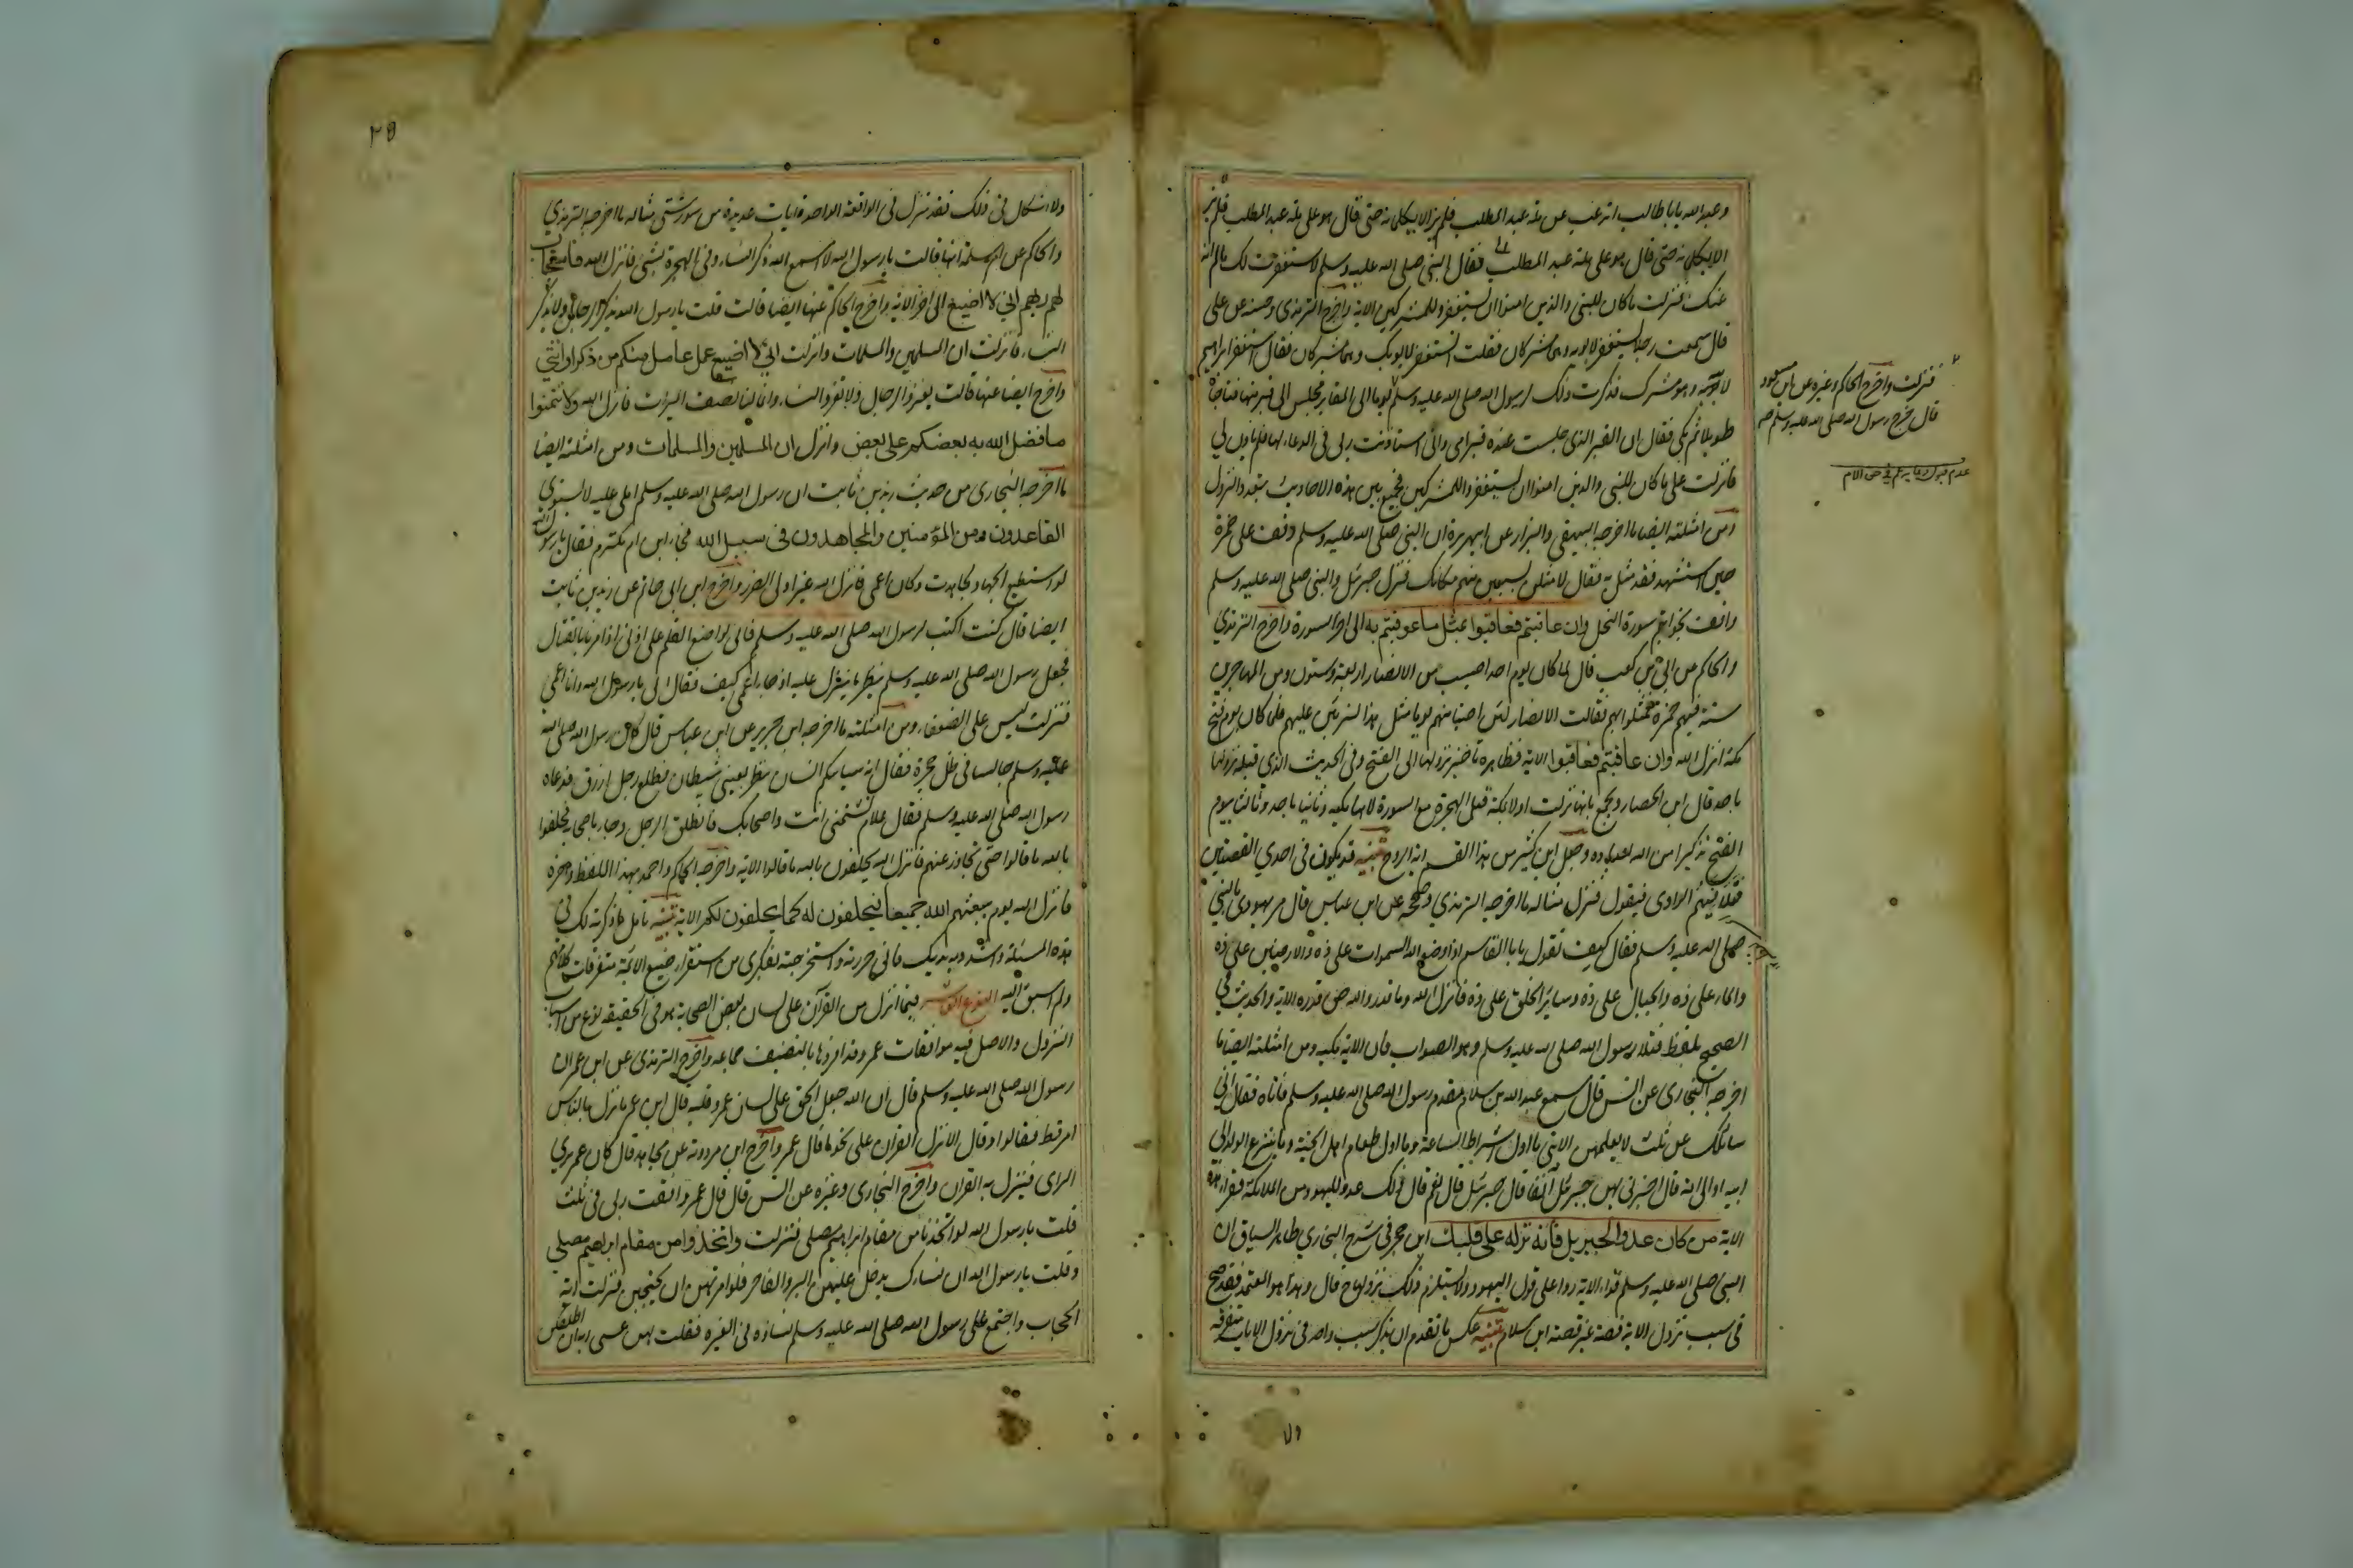 وعبد الله يابا طالب اترغب عن ملة عبد المطلب فلم يزالا يكلمانه حتى قال هو على ملة عبد المطلب فلم يز
الا يكلمانه حتى قال هو على ملة عبد المطلب فقال النبي صلى الله عليه وسلم لاستغفرن لك مالم انه
عنك فنزلت ما كان للنبي والذين امنوا ان يستغفروا للمشركين الاية واخرج الترمذي وحسنه عن علي
قال سمعت رجلا يستغفر لابويه وهما مشركان فقلت اتستغفر لابويك وهما مشركان فقال استغفر ابراهيم
لابيه وهو مشرك فذكرت ذلك لرسول الله صلى الله عليه وسلم يوما الى المقابر فجلس الى قبر منها فناجاه
طويلا ثم بكى فقال ان القبر الذي جلست عنده قبر امي واني استاذنت ربي في الدعاء لها فلم ياذن لي
فانزلت علي ما كان للنبي والذين امنوا ان يستغفروا للمشركين فجمع بين هذه الاحاديث بتعدد النزول
ومن امثلته ايضا ما اخرجه البيهقي والبزار عن ابي هريرة ان النبي صلى الله عليه وسلم وقف على حمزة
حين استشهد فقد مثل به فقال لامثلن بسبعين منهم مكانك فنزل جبرئل والنبي صلى الله عليه وسلم
واقف بخواتم سورة النحل وان عاقبتم فعاقبوا بمثل ما عوقبتم به الى اخر السورة واخرج الترمذي
والحاكم عن ابي بن كعب قال لما كان يوم احد اصيب من الانصار اربعة وستون ومن المهاجرين
ستة فيهم حمزة فمثلوا بهم فقالت الانصار لئن اصبنا منهم يوما مثل هذا لنربين عليهم فلما كان يوم فتح
مكة انزل الله وان عاقبتم فعاقبوا الاية فظاهره تاخير نزولها الى الفتح وفي الحديث الذي قبله نزولها
باحد قال ابن الحصار ويجمع بانها نزلت اولا بمكة قبل الهجرة مع السورة لانها مكية وثانيا باحد وثالثا يوم
الفتح تذكيرا من الله لعباده وجعل ابن كثير من هذا القسم اية الروح تنبيه قد يكون في احدي القصتين
فتلا فيهم الراوي فيقول فنزل مثاله ما اخرجه الترمذي وصححه عن ابن عباس قال مر يهودي بالنبي
صلى الله عليه وسلم فقال كيف تقول يابا القاسم اذا وضع الله السموات على ذه والارضين على ذه
والماء على ذه والجبال على ذه وسائر الخلق على ذه فانزل الله وما قدروا الله حق قدره الاية والحديث في
الصحيح بلفظ فتلا رسول الله صلى الله عليه وسلم وهو الصواب فان الاية مكية ومن امثلته ايضا ما
اخرجه البخاري عن انس قال سمع عبد الله بن سلام مقدم رسول الله صلى الله عليه وسلم فاتاه فقال اني
سائلك عن ثلث لا يعلمهن الا نبي ما اول اشراط الساعة وما اول طعام اهل الجنة وما ينزع الولد الى
ابيه او الى امه قال اخبرني بهن جبرئل آنفا قال جبرئل قال نعم قال ذلك عدو لليهود من الملائكة فقرا هذه
الاية من كان عدوا لجبريل فانه نزله على قلبك ابن حجر في شرح البخاري ظاهر السياق ان
النبي صلى الله عليه وسلم قراء الاية ردا على قول اليهود ولا يستلزم ذلك نزولها ح قال وهذا هو المعتمد فقد صح
في سبب نزول الاية قصة غير قصة ابن سلام تنبيه عكس ما تقدم ان يذكر سبب واحد في نزول الايات متفرقة
فنزلت واخرج الحاكم وغيره عن ابن مسعود
قال خرج رسول الله صلى الله عليه وسلم
٢٥
ولا اشكال في ذلك فقد ينزل في الواقعة الواحدة ايات عديدة من سور شتى مثاله ما اخرجه الترمذي
والحاكم عن ام سلمة انها قالت يا رسول الله لا اسمع الله ذكر النساء في الهجرة بشي فانزل الله فاستجاب
لهم ربهم اني لا اضيع الى اخر الاية واخرج الحاكم عنها ايضا قالت قلت يا رسول الله يذكر الرجال ولا يذكر
النساء فانزلت ان المسلمين والمسلمات وانزلت اني لا اضيع عمل عامل منكم من ذكر او انثي
واخرج ايضا عنها قالت يغزو الرجال ولا تغزو النساء وانما لنا نصف الميراث فانزل الله ولا تتمنوا
ما فضل الله به بعضكم على بعض وانزل ان المسلمين والمسلمات ومن امثلته ايضا
ما اخرجه البخاري من حديث زيد بن ثابت ان رسول الله صلى الله عليه وسلم املى عليه لا يستوي
القاعدون من المؤمنين والمجاهدون في سبيل الله فجاء ابن ام مكتوم فقال يا رسول الله
لو استطيع الجهاد لجاهدت وكان اعمى فانزل الله غير اولى الضرر واخرج ابن ابي حاتم عن زيد بن ثابت
ايضا قال كنت اكتب لرسول الله صلى الله عليه وسلم فاني لواضع القلم على اذني اذ امر بالقتال
فجعل رسول الله صلى الله عليه وسلم ينظر ما ينزل عليه اذ جاء اعمى كيف فقال لي يا رسول الله وانا اعمى
فنزلت ليس على الضعفاء ومن امثلته ما اخرجه ابن جرير عن ابن عباس قال كان رسول الله صلى الله
عليه وسلم جالسا في ظل حجرة فقال انه سياتيكم انسان ينظر بعيني شيطان فطلع رجل ازرق فدعاه
رسول الله صلى الله عليه وسلم فقال علام تشتمني انت واصحابك فانطلق الرجل وجاء باصحابه فحلفوا
بالله ما قالوا حتى تجاوز عنهم فانزل الله يحلفون بالله ما قالوا الاية واخرجه الحاكم واحمد بهذا اللفظ واخره
فانزل الله يوم يبعثهم الله جميعا فيحلفون له كما يحلفون لكم الاية تنبيه تامل ما ذكرته لك في
هذه المسئلة واشدد به يديك فاني حررته واستخرجته بفكري من استقراء صنيع الائمة متفرقات كلامهم
ولم اسبق اليه النوع العاشر فيما انزل من القرآن على لسان بعض الصحابة هو في الحقيقة نوع من اسباب
النزول والاصل فيه موافقات عمر وقد افردها بالتصنيف جماعه واخرج الترمذي عن ابن عمر ان
رسول الله صلى الله عليه وسلم قال ان الله جعل الحق على لسان عمر وقلبه قال ابن عمر ما نزل بالناس
امر قط فقالوا وقال الا نزل القران على نحو ما قال عمر واخرج ابن مردويه عن مجاهد قال كان عمر يري
الراى فينزل به القران واخرج البخاري وغيره عن انس قال قال عمر وافقت ربي في ثلث
قلت يا رسول الله لو اتخذنا من مقام ابراهيم مصلى فنزلت واتخذوا من مقام ابراهيم مصلى
وقلت يا رسول الله ان نساءك يدخل عليهن البر والفاجر فلو امرتهن ان يحتجبن فنزلت اية
الحجاب واجتمع على رسول الله صلى الله عليه وسلم نساؤه في الغيره فقلت لهن عسى ربه ان طلقكن